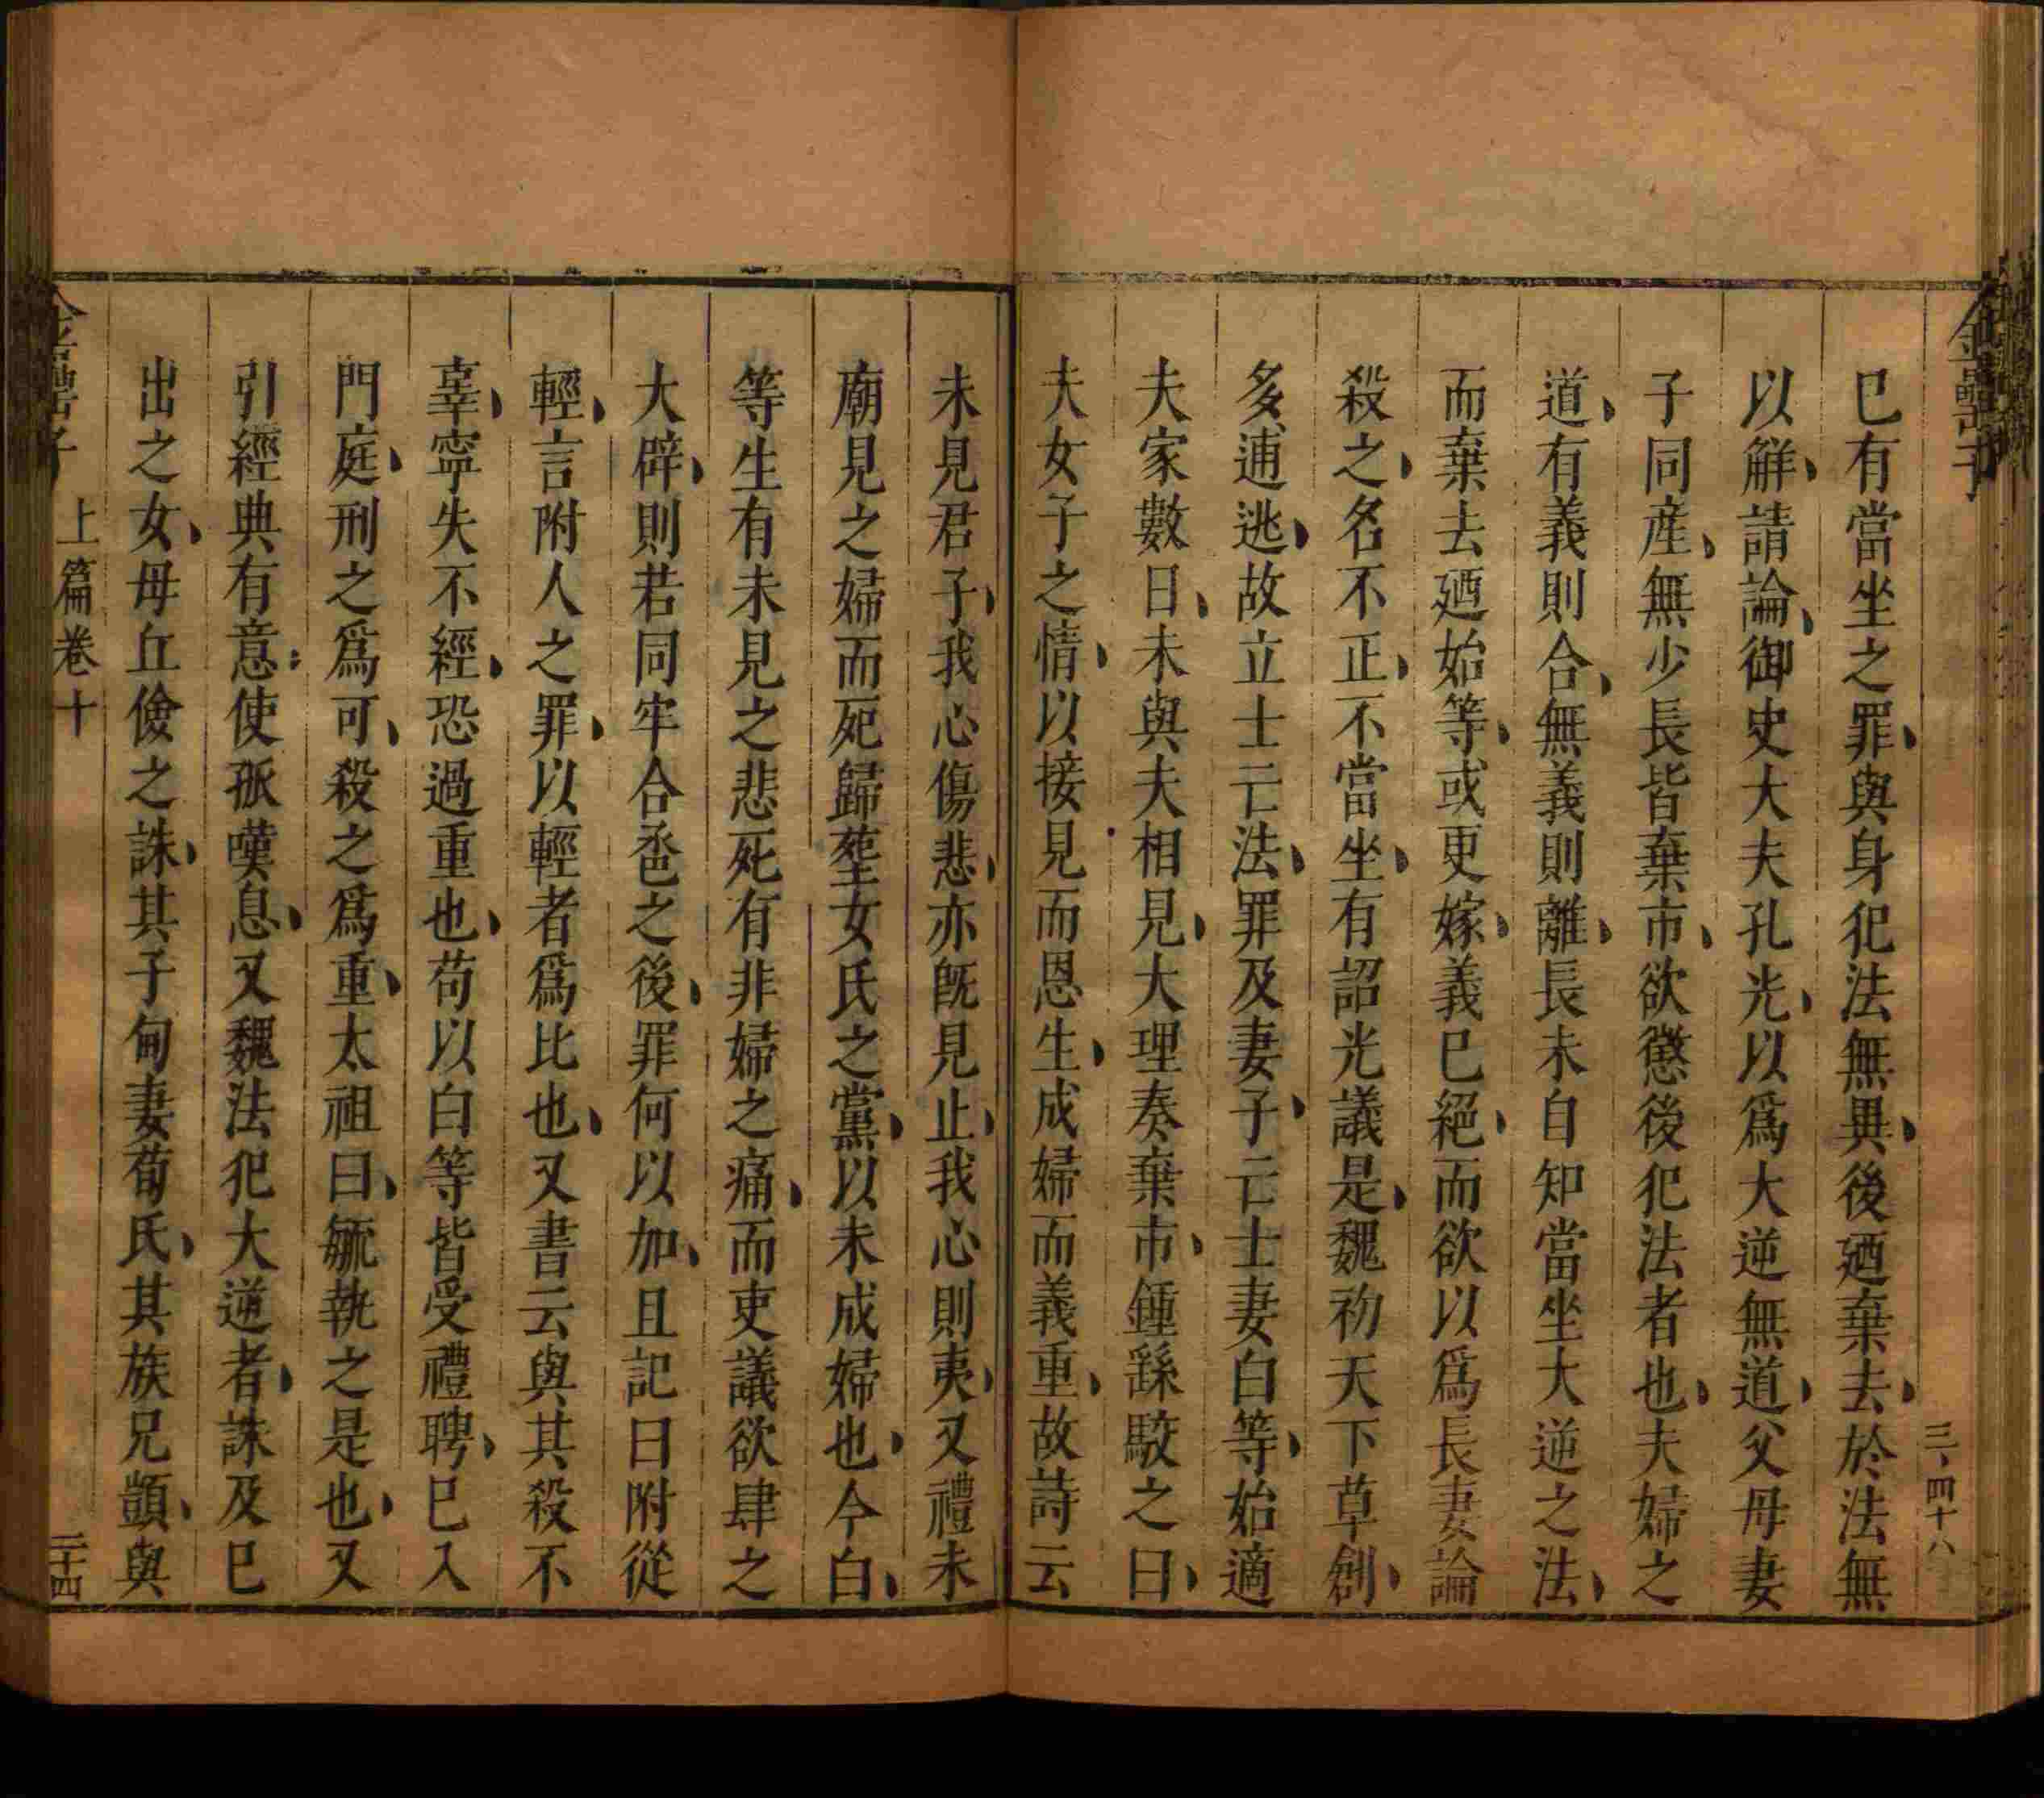 金罍子
三、四十八
巳有當坐之罪、與身犯法無異、後廼棄去、於法無
以解、請論、御史大夫孔光、以爲大逆無道、父母妻
子同産、無少長皆棄市、欲懲後犯法者也、夫婦之
道、有義則合、無義則離、長未自知當坐大逆之法、
而棄去廼始等、或更嫁、義巳絕、而欲以爲長妻論
殺之、名不正、不當坐、有詔光議是、魏初天下草創、
多逋逃、故立士亡法、罪及妻子、亡士妻白等、始適
夫家數日、未與夫相見、大理奏棄市、鍾繇駮之曰、
夫女子之情、以接見而恩生、成婦而義重、故詩云
未見君子、我心傷悲、亦旣見止、我心則夷、又禮未
廟見之婦而死歸塟女氏之黨、以未成婦也、今白、
等生有未見之悲死有非婦之痛、而吏議欲肆之
大辟、則若同牢合巹之後、罪何以加、且記曰附從
輕、言附人之罪、以輕者爲比也、又書云與其殺不
辜、寧失不經、恐過重也、苟以白等皆受禮聘、巳入
門庭、刑之爲可、殺之爲重、太祖曰、毓執之是也、又
引經典有意、使孤嘆息、又魏法犯大逆者、誅及巳
出之女、毋丘儉之誅、其子甸妻荀氏、其族兄顗、與
金罍子
上篇卷十
二十四